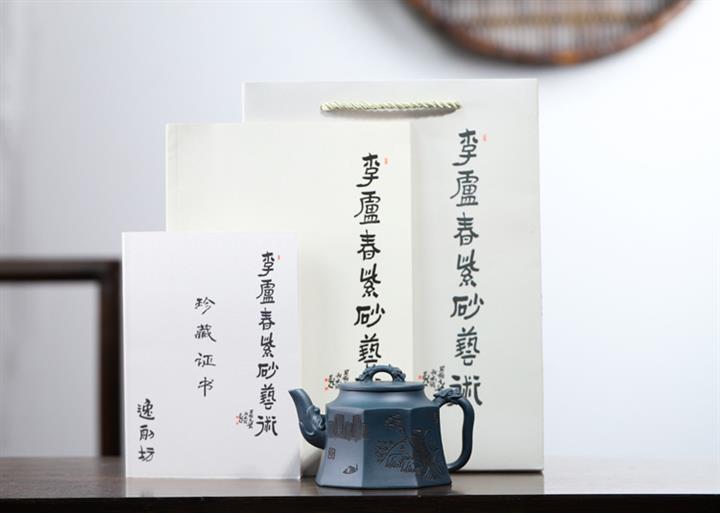 李盧春紫砂藝術
李盧春紫砂藝
李盧春紫砂藝術
珍藏证书
逸坊